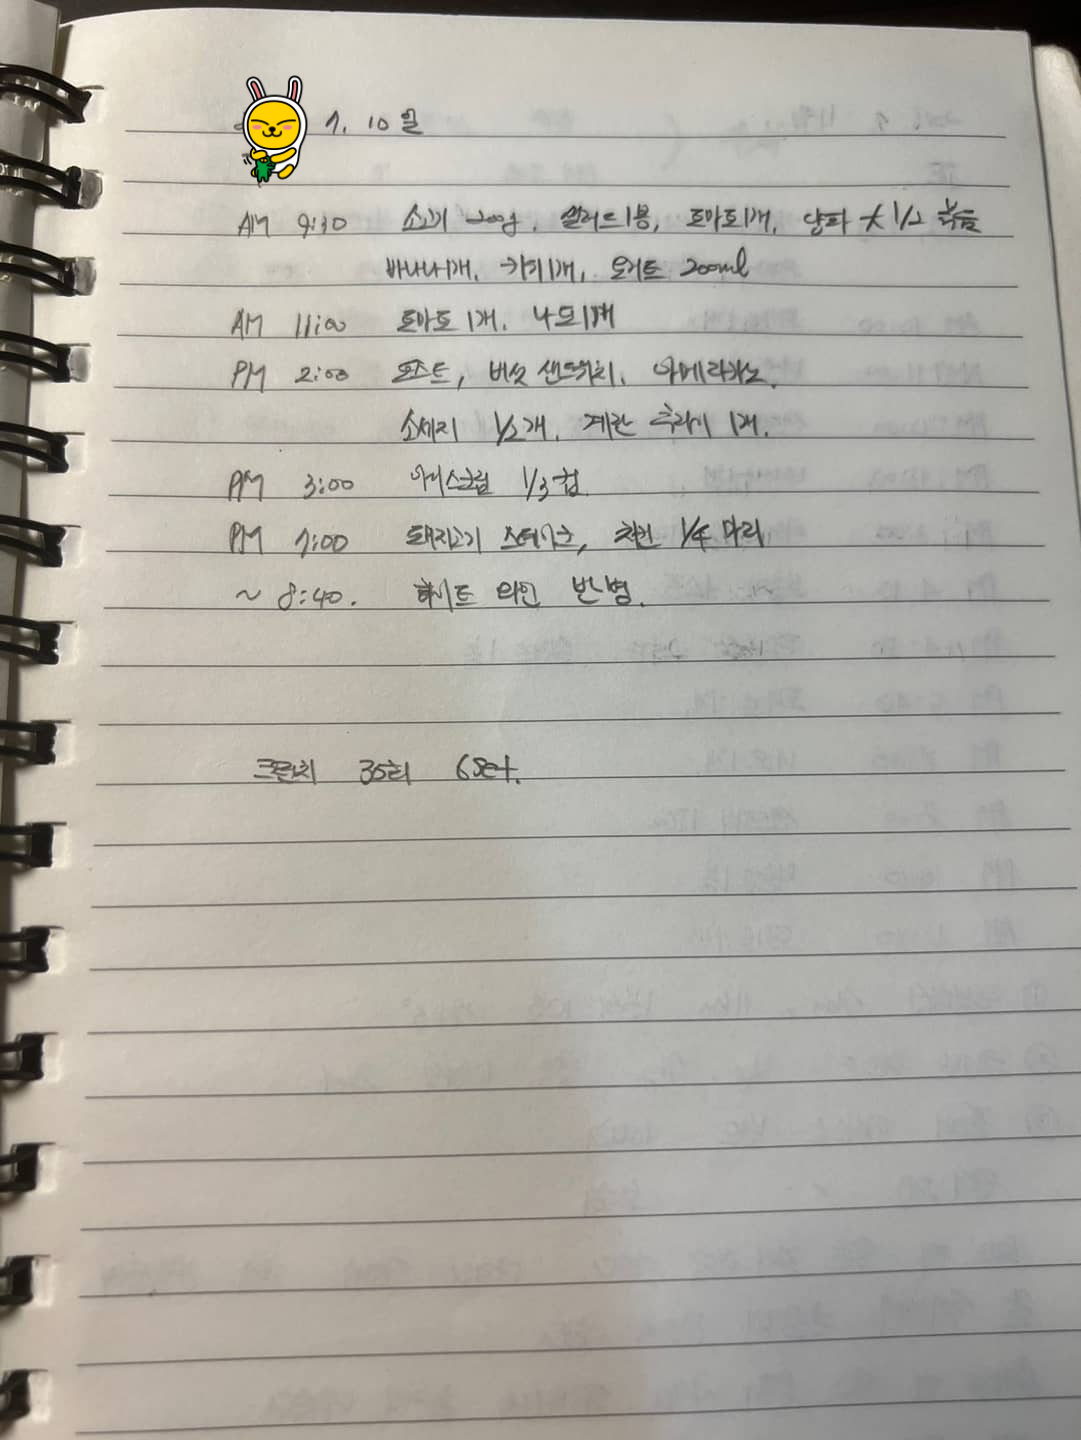 7. 10일
AM 9:30 소고기 200g, 샐러드1봉, 토마토1개, 양파 大 1/2 볶음
바나나1개, 키위1개, 요거트 200ml
AM 11:00 토마토 1개, 낫또1개
PM 2:00 토스트, 버섯 샌드위치, 아메리카노,
소세지 1/2개, 계란 후라이 1개.
PM 3:00 아이스크림 1/3컵
PM 7:00 돼지고기 스테이크, 치킨 1/4 마리
~ 8:40. 화이트 와인 반병.
크런치 35회 6Set.